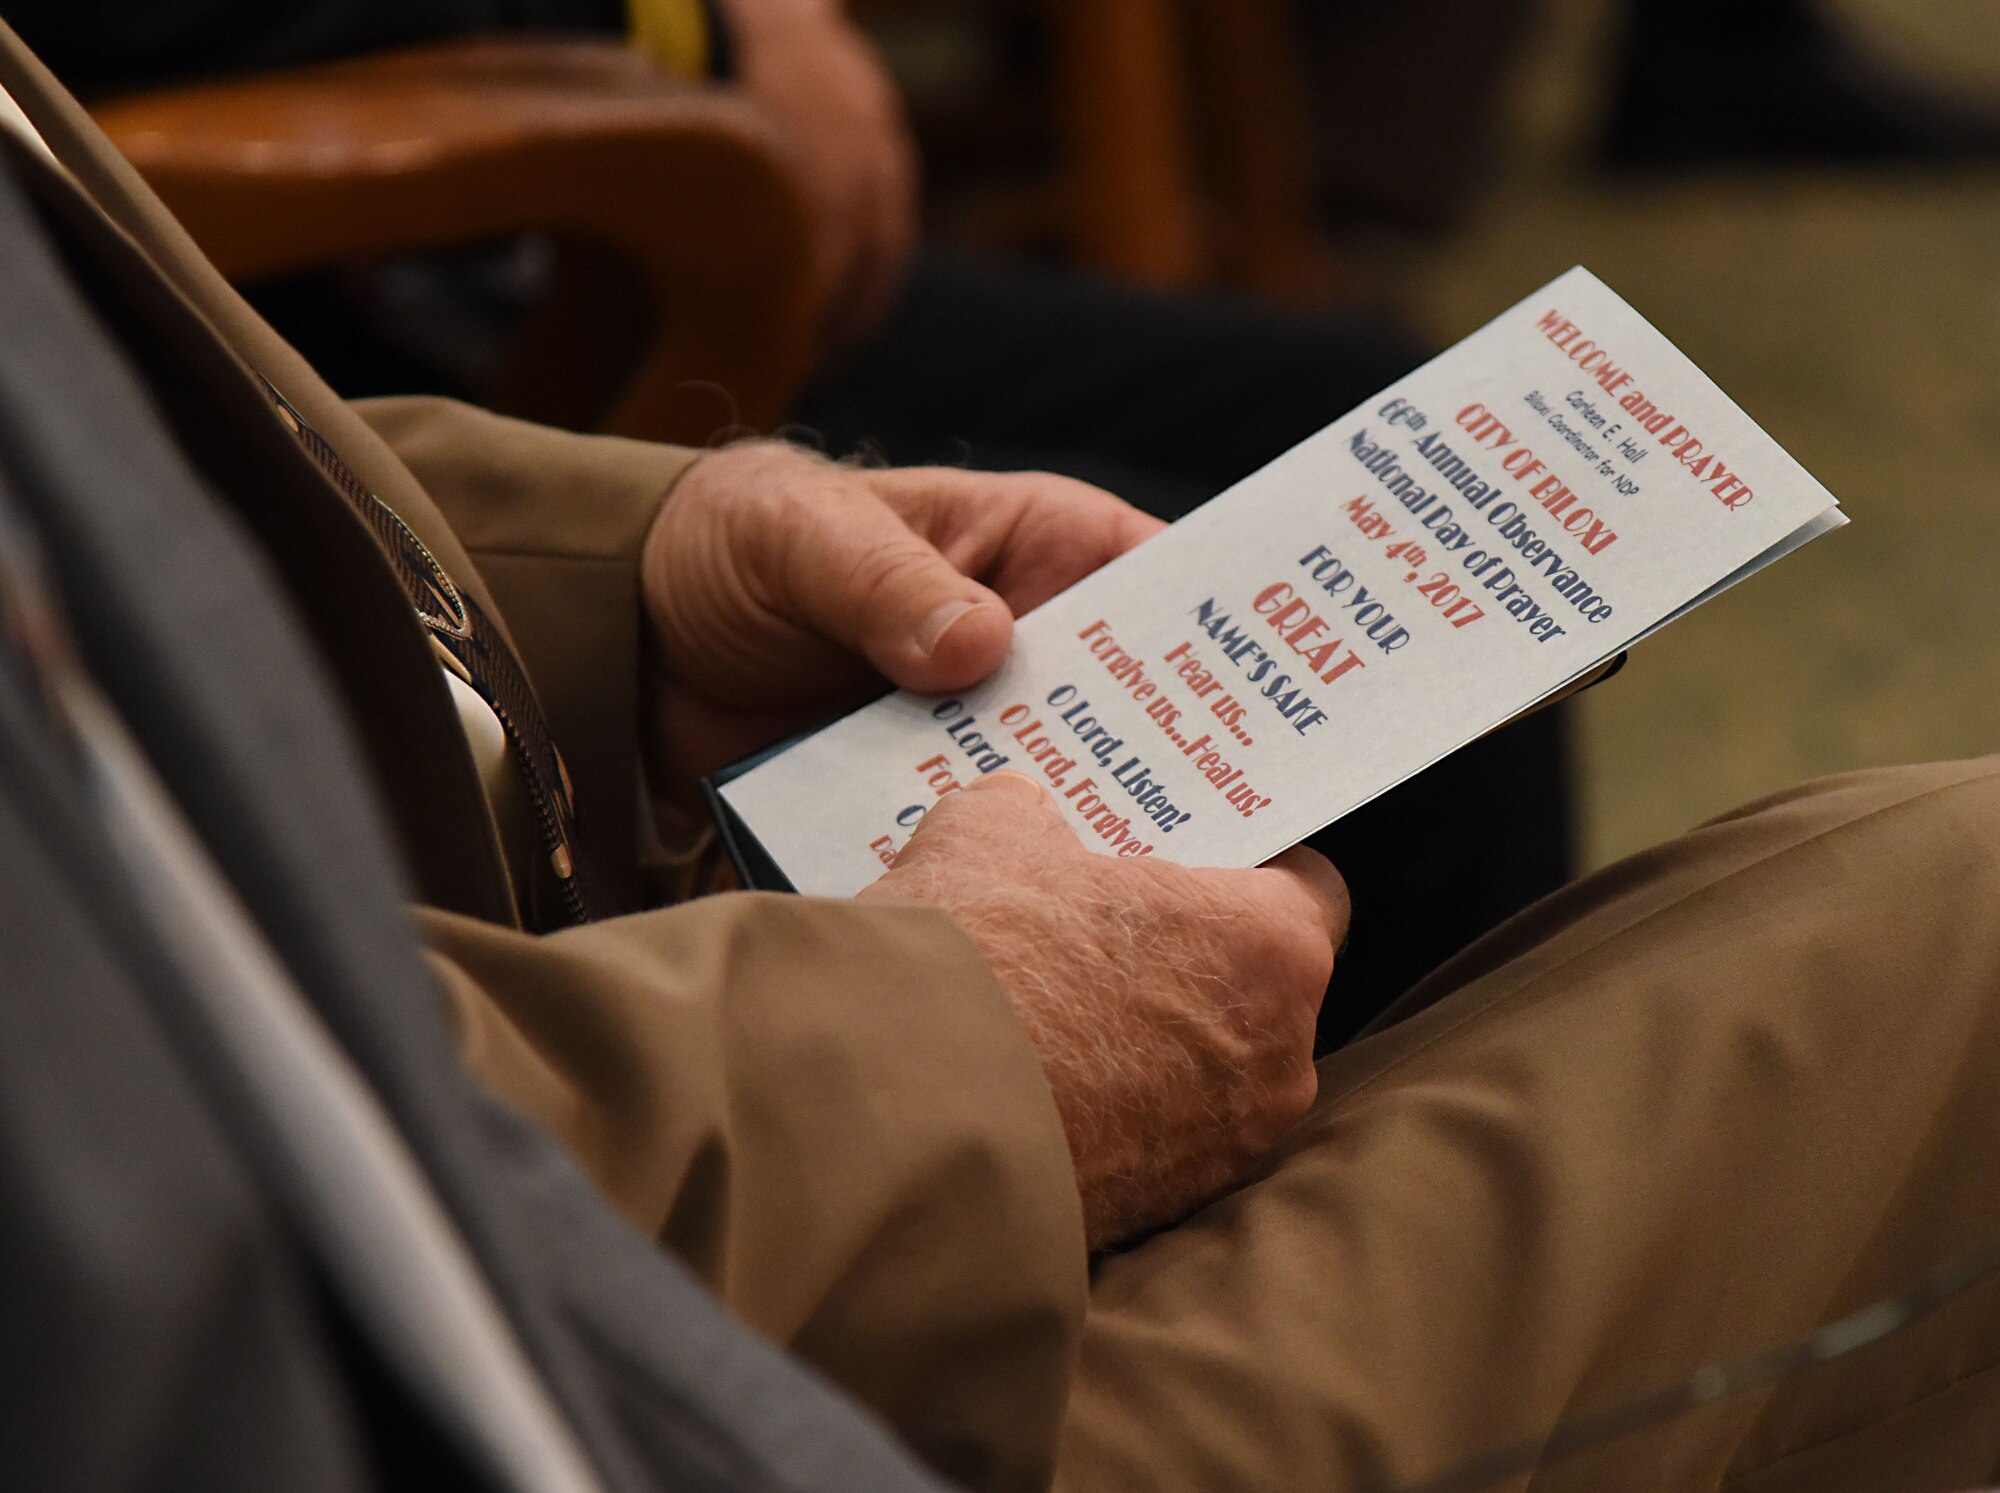 WELCOME and PRAYER
Carleen E. Hall
Biloxi Coordinator for NDP
CITY OF BILOXI
66th Annual Observance
National Day of Prayer
May 4th, 2017
FOR YOUR
GREAT
NAME'S SAKE
Hear us...
Forgive us...Heal us!
O Lord, Listen!
O Lord, Forgive!
O Lord
For
O
Da